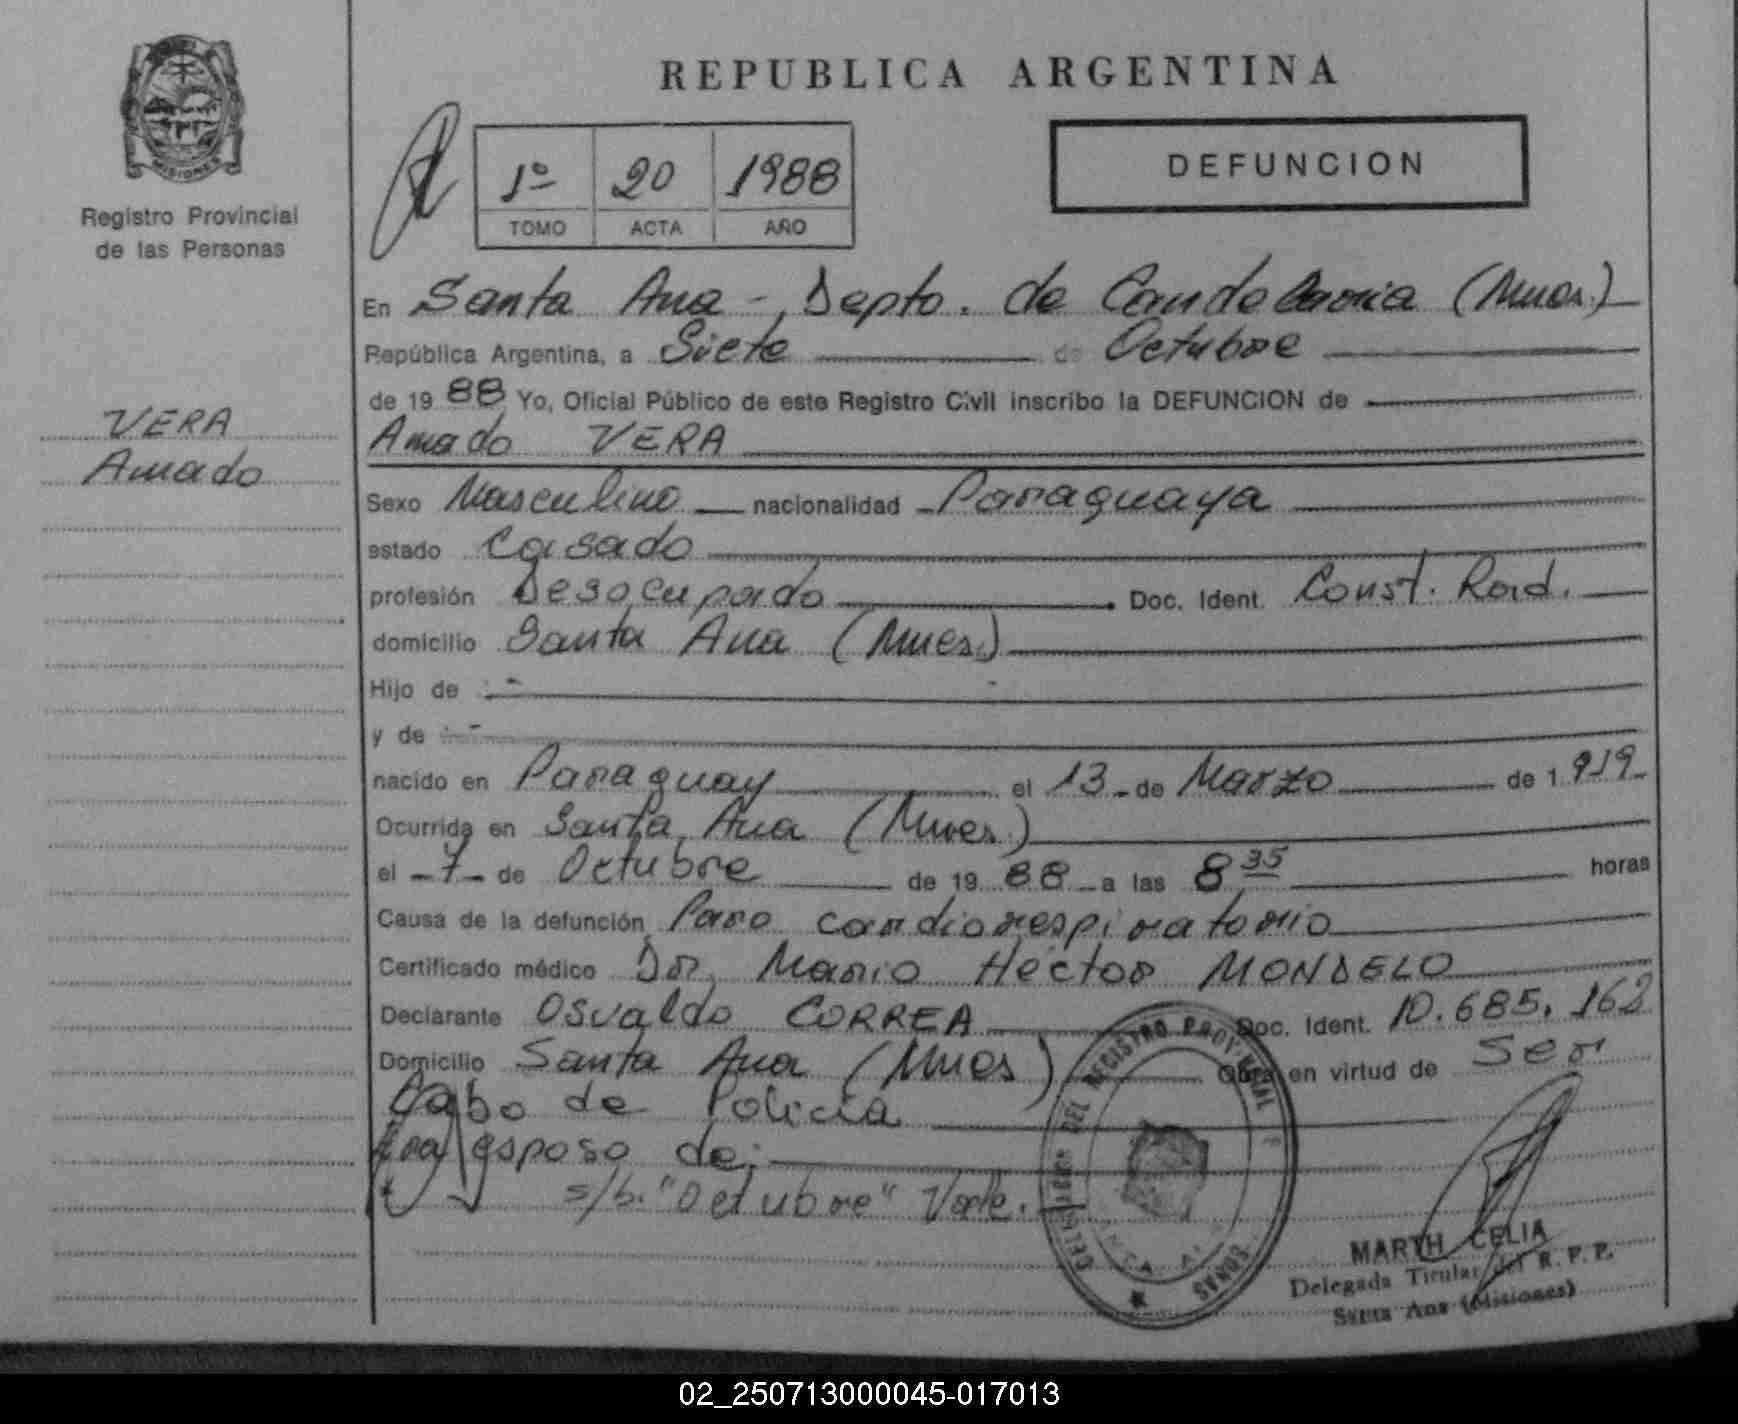 MISIONES
Registro Provincial
de las Personas
VERA
Amado
REPUBLICA ARGENTINA
1º 20 1988
TOMO ACTA AÑO
DEFUNCION
En Santa Ana - Depto. de Candelaria (Mnes.)
República Argentina, a Siete de Octubre
de 19 88 Yo, Oficial Público de este Registro Civil inscribo la DEFUNCION de
Amado VERA
Sexo Masculino nacionalidad Paraguaya
estado Casado
profesión Desocupado Doc. Ident. Const. Rad.
domicilio Santa Ana (Mnes.)
Hijo de
y de
nacido en Paraguay el 13 de Marzo de 1919
Ocurrida en Santa Ana (Mnes.)
el 7 de Octubre de 19 88 a las 8 35 horas
Causa de la defunción Paro cardiorespiratorio
Certificado médico Dr. Mario Héctor MONDELO
Declarante Osvaldo CORREA Doc. Ident. 10.685.162
Domicilio Santa Ana (Mnes) Obra en virtud de Ser
Cabo de Policía
Era esposo de:
s/b. "Octubre" Vale.
REGISTRO PROVINCIAL
MARTH CELIA
Delegada Titular del R. P. P.
Santa Ana (Misiones)
02_250713000045-017013